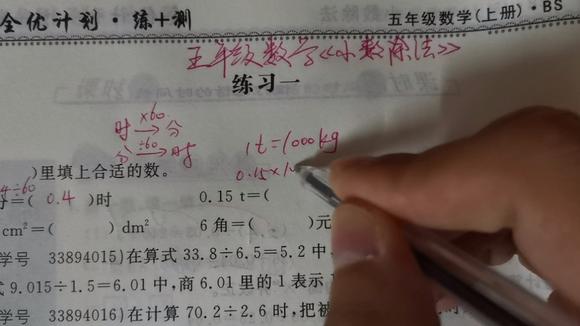 全优计划·练+测 五年级数学(上册)·BS
五年级数学《小数除法》
练习一
时 ×60→ 分
分 ÷60→ 时
1t=1000kg
)里填上合适的数。 0.15×1
4÷60
=( 0.4 )时 0.15 t=(
cm²=( )dm² 6 角=( )元
学号 33894015)在算式 33.8÷6.5=5.2 中
9.015÷1.5=6.01 中,商 6.01 里的 1 表示
学号 33894016)在计算 70.2÷2.6 时,把被